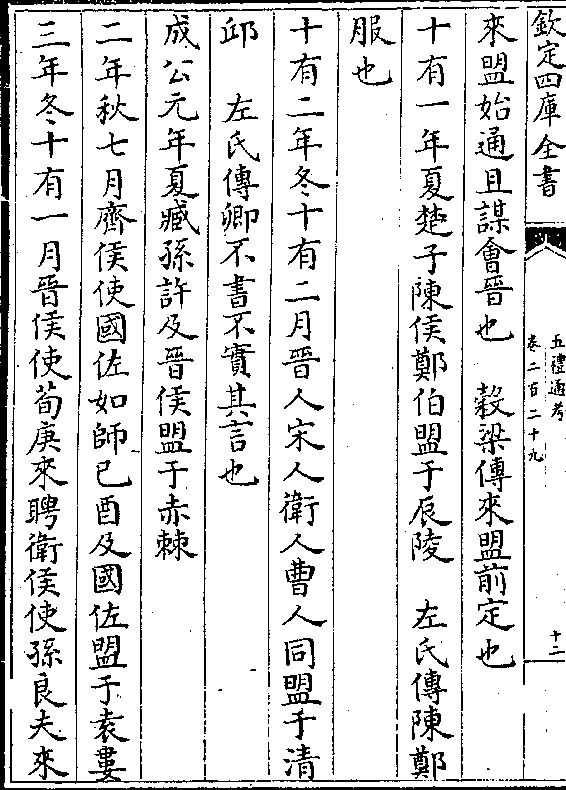 欽定四庫全書
五禮通考
卷二百二十九
十二
來盟始通且謀會晉也　穀梁傳來盟前定也
十有一年夏楚子陳侯鄭伯盟于辰陵　左氏傳陳鄭
服也
十有二年冬十有二月晉人宋人衛人曹人同盟于清
邱　左氏傳卿不書不實其言也
成公元年夏臧孫許及晉侯盟于赤棘
二年秋七月齊侯使國佐如師己酉及國佐盟于袁婁
三年冬十有一月晉侯使荀庚來聘衛侯使孫良夫來